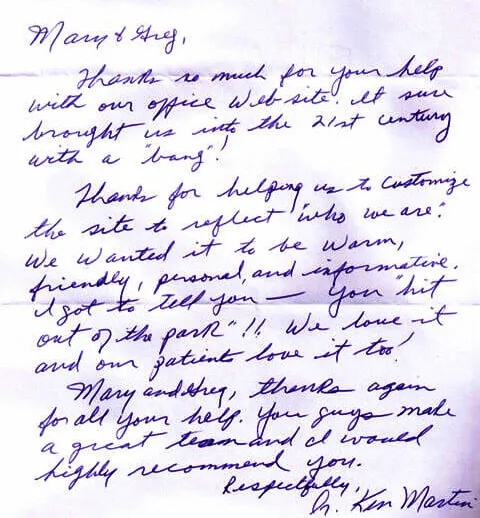 Mary & Greg,
Thanks so much for your help
with our office Web site. It sure
brought us into the 21st century
with a "bang"!
Thanks for helping us to customize
the site to reflect "who we are".
We wanted it to be warm,
friendly, personal, and informative.
I got to tell you — you "hit
out of the park"!! We love it
and our patients love it too!
Mary and Greg, thanks again
for all your help. You guys make
a great team and I would
highly recommend you.
Respectfully,
Dr. Ken Martin